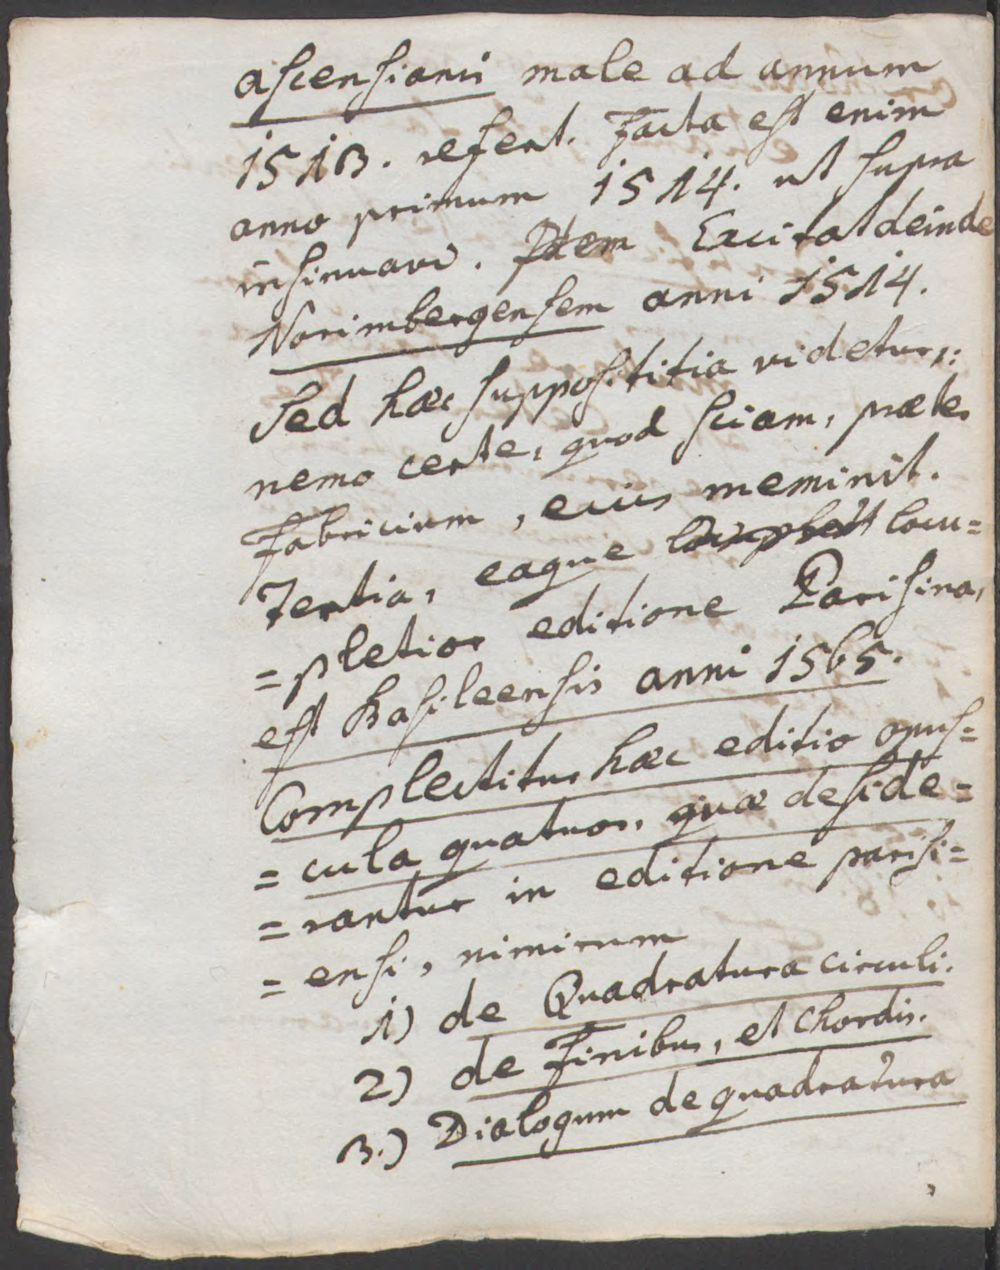 ascensianii male ad annum
1513. refert. Facta est enim
anno primum 1514. ut supra
insinuavi. Idem Excitat deinde
Norimbergensem anni 1514.
Sed hæc supposititia videtur,:
nemo certe, quod sciam, præter
Fabricium, eius meminit.
Tertia, eaque locu=
=pletior editione Parisina,
est Basileensis anni 1565.
Complectitur hæc editio opus=
=cula quatuor, quæ deside=
=rantur in editione parisi=
=ensi, nimirum
1) de Quadratura circuli.
2) de Finibus, et chordis.
3.) Dialogum de quadratura